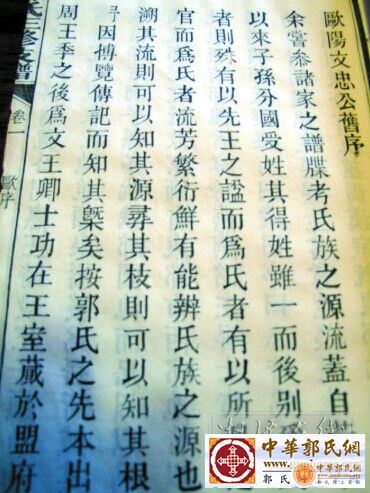 歐陽文忠公舊序
余嘗叅諸家之譜牒考氏族之源流葢自
以來子孫分國受姓其得姓雖一而後别
者則殊有以先王之諡而爲氏者有以所
官而爲氏者流芳繁衍鮮有能辨氏族之源也
溯其流則可以知其源尋其枝則可以知其根
因博覽傳記而知其槩矣按郭氏之先本出
周王季之後爲文王卿士功在王室藏於盟府
卷一
歐序
中華郭氏網
郭氏